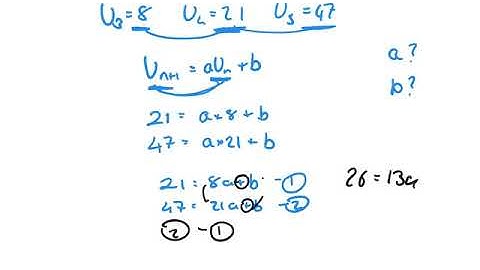 U₃=8 U₄=21 U₅=47
Uₙ₊₁ = aUₙ + b
a?
b?
21 = a×8 + b
47 = a×21 + b
21 = 8a+b - ①
26 = 13a
47 = 21a+b - ②
② - ①